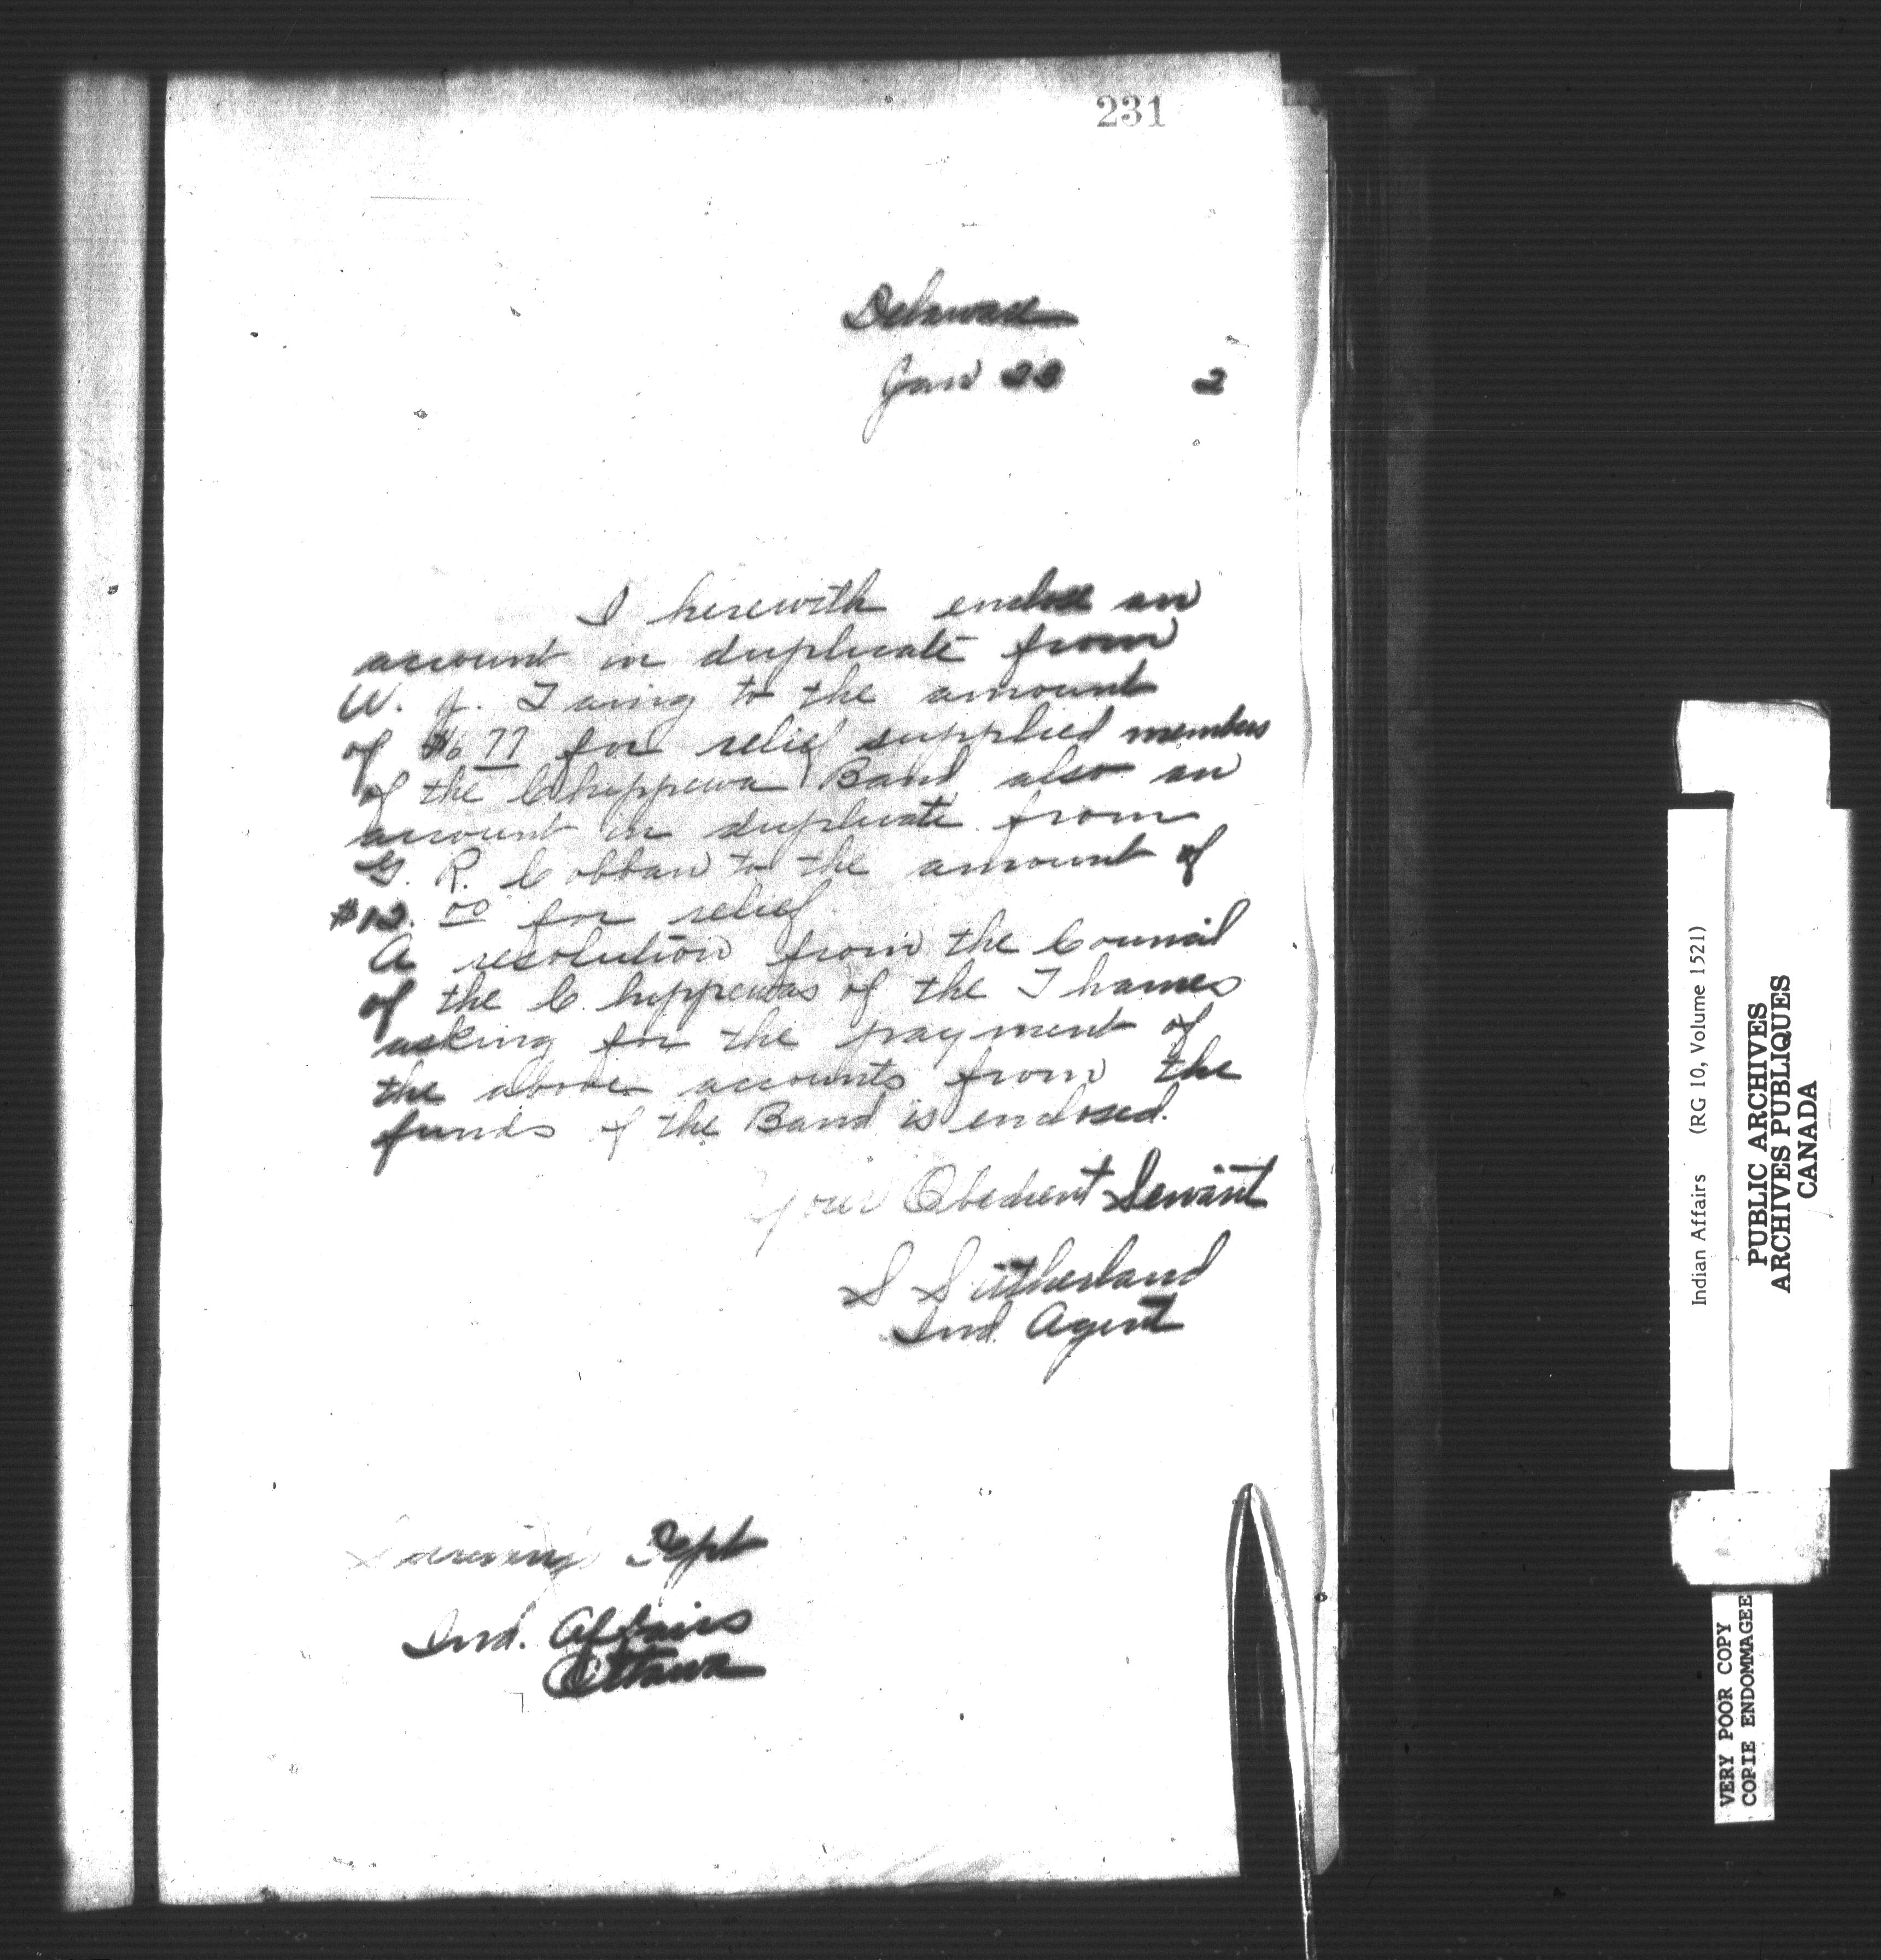 231
Delaware
Jan 23 2
I herewith enclose an
account in duplicate from
W. J. Laing to the amount
of $6 77 for relief supplied members
of the Chippewa Band also an
account in duplicate from
G. R. Cobban to the amount of
$12. 00 for relief
A resolution from the Council
of the Chippewas of the Thames
asking for the payment of
the above accounts from the
funds of the Band is enclosed.
Your Obedient Servant
S Sutherland
Ind. Agent
Dept
Ind. Affairs
Ottawa
Indian Affairs (RG 10, Volume 1521)
PUBLIC ARCHIVES
ARCHIVES PUBLIQUES
CANADA
VERY POOR COPY
COPIE ENDOMMAGEE